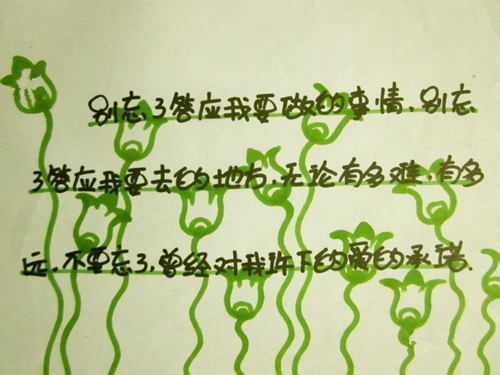 别忘了答应我要做的事情，别忘
了答应我要去的地方，无论有多难，有多
远，不要忘了，曾经对我许下的爱的承诺.